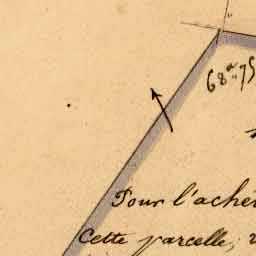 68ᵃ75
Pour l'achè
Cette parcelle,